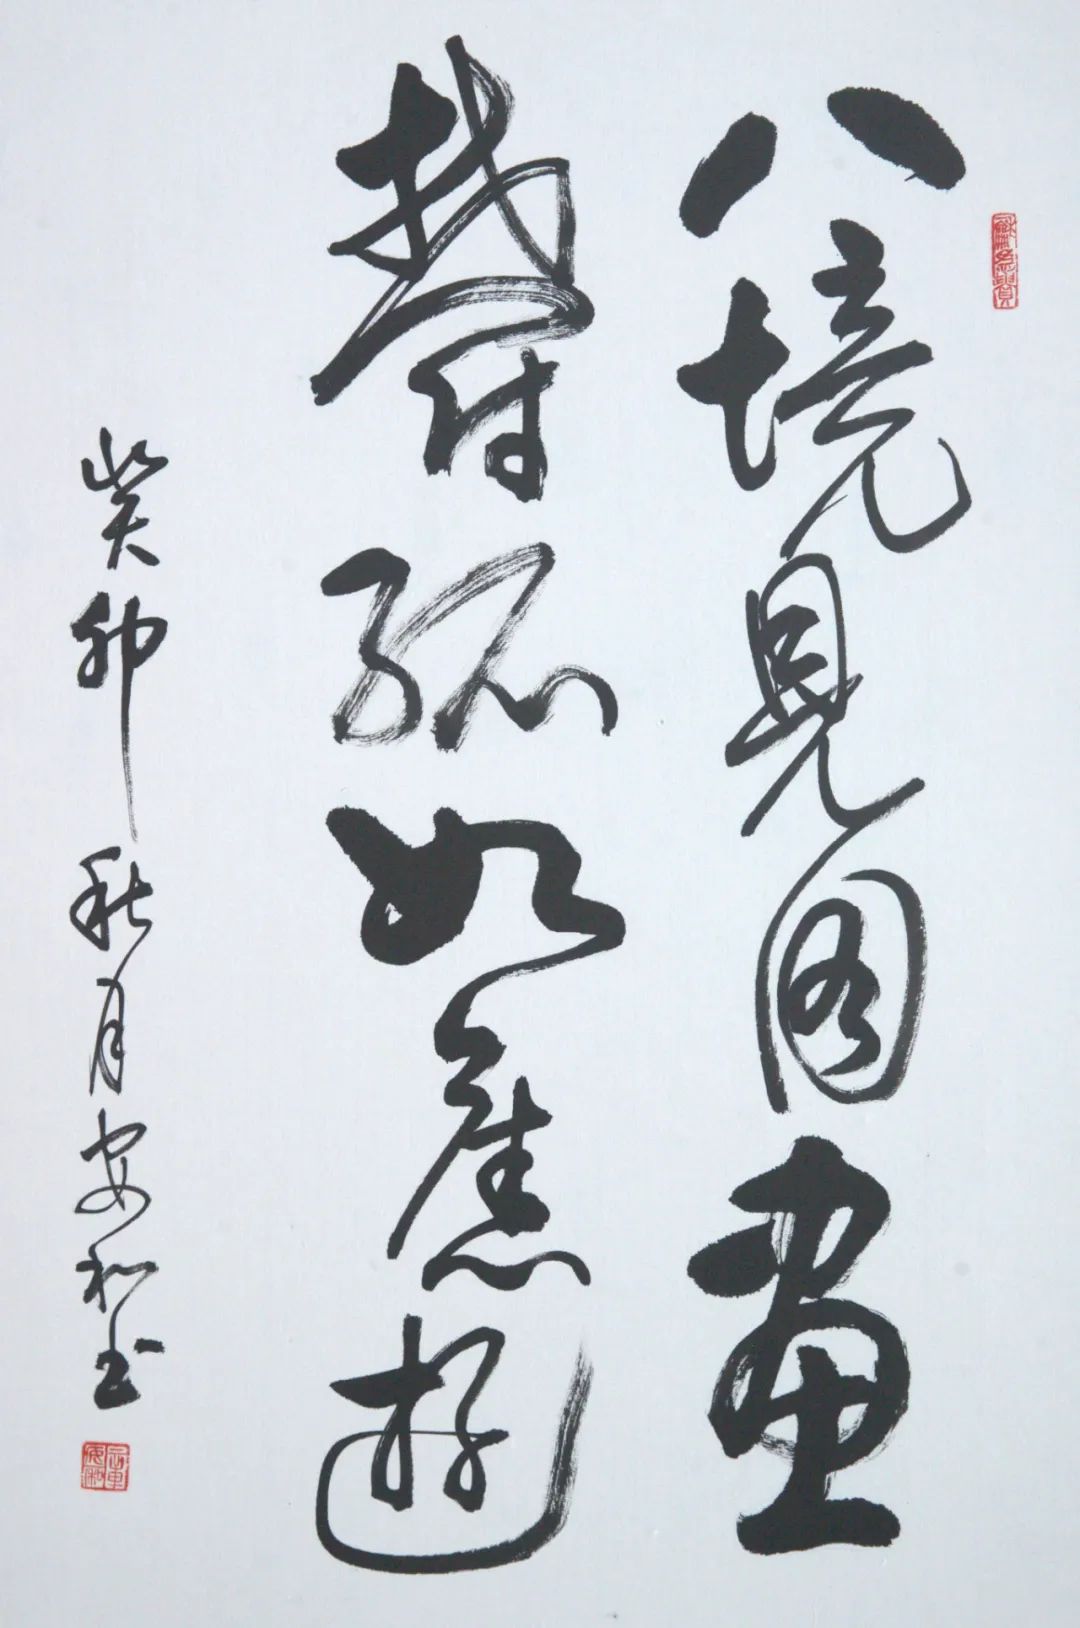 八境见图画
郁孤如旧遊
癸卯秋月安和书